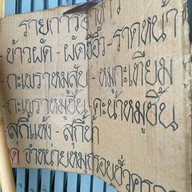 รายการอาหาร
ข้าวผัด - ผัดซีอิ้ว - ราดหน้า
กะเพราหมูสับ - หมูกะเทียม
กะเพราหมูชิ้น - คะน้าหมูชิ้น
สุกี้แห้ง - สุกี้น้ำ
จำหน่าย